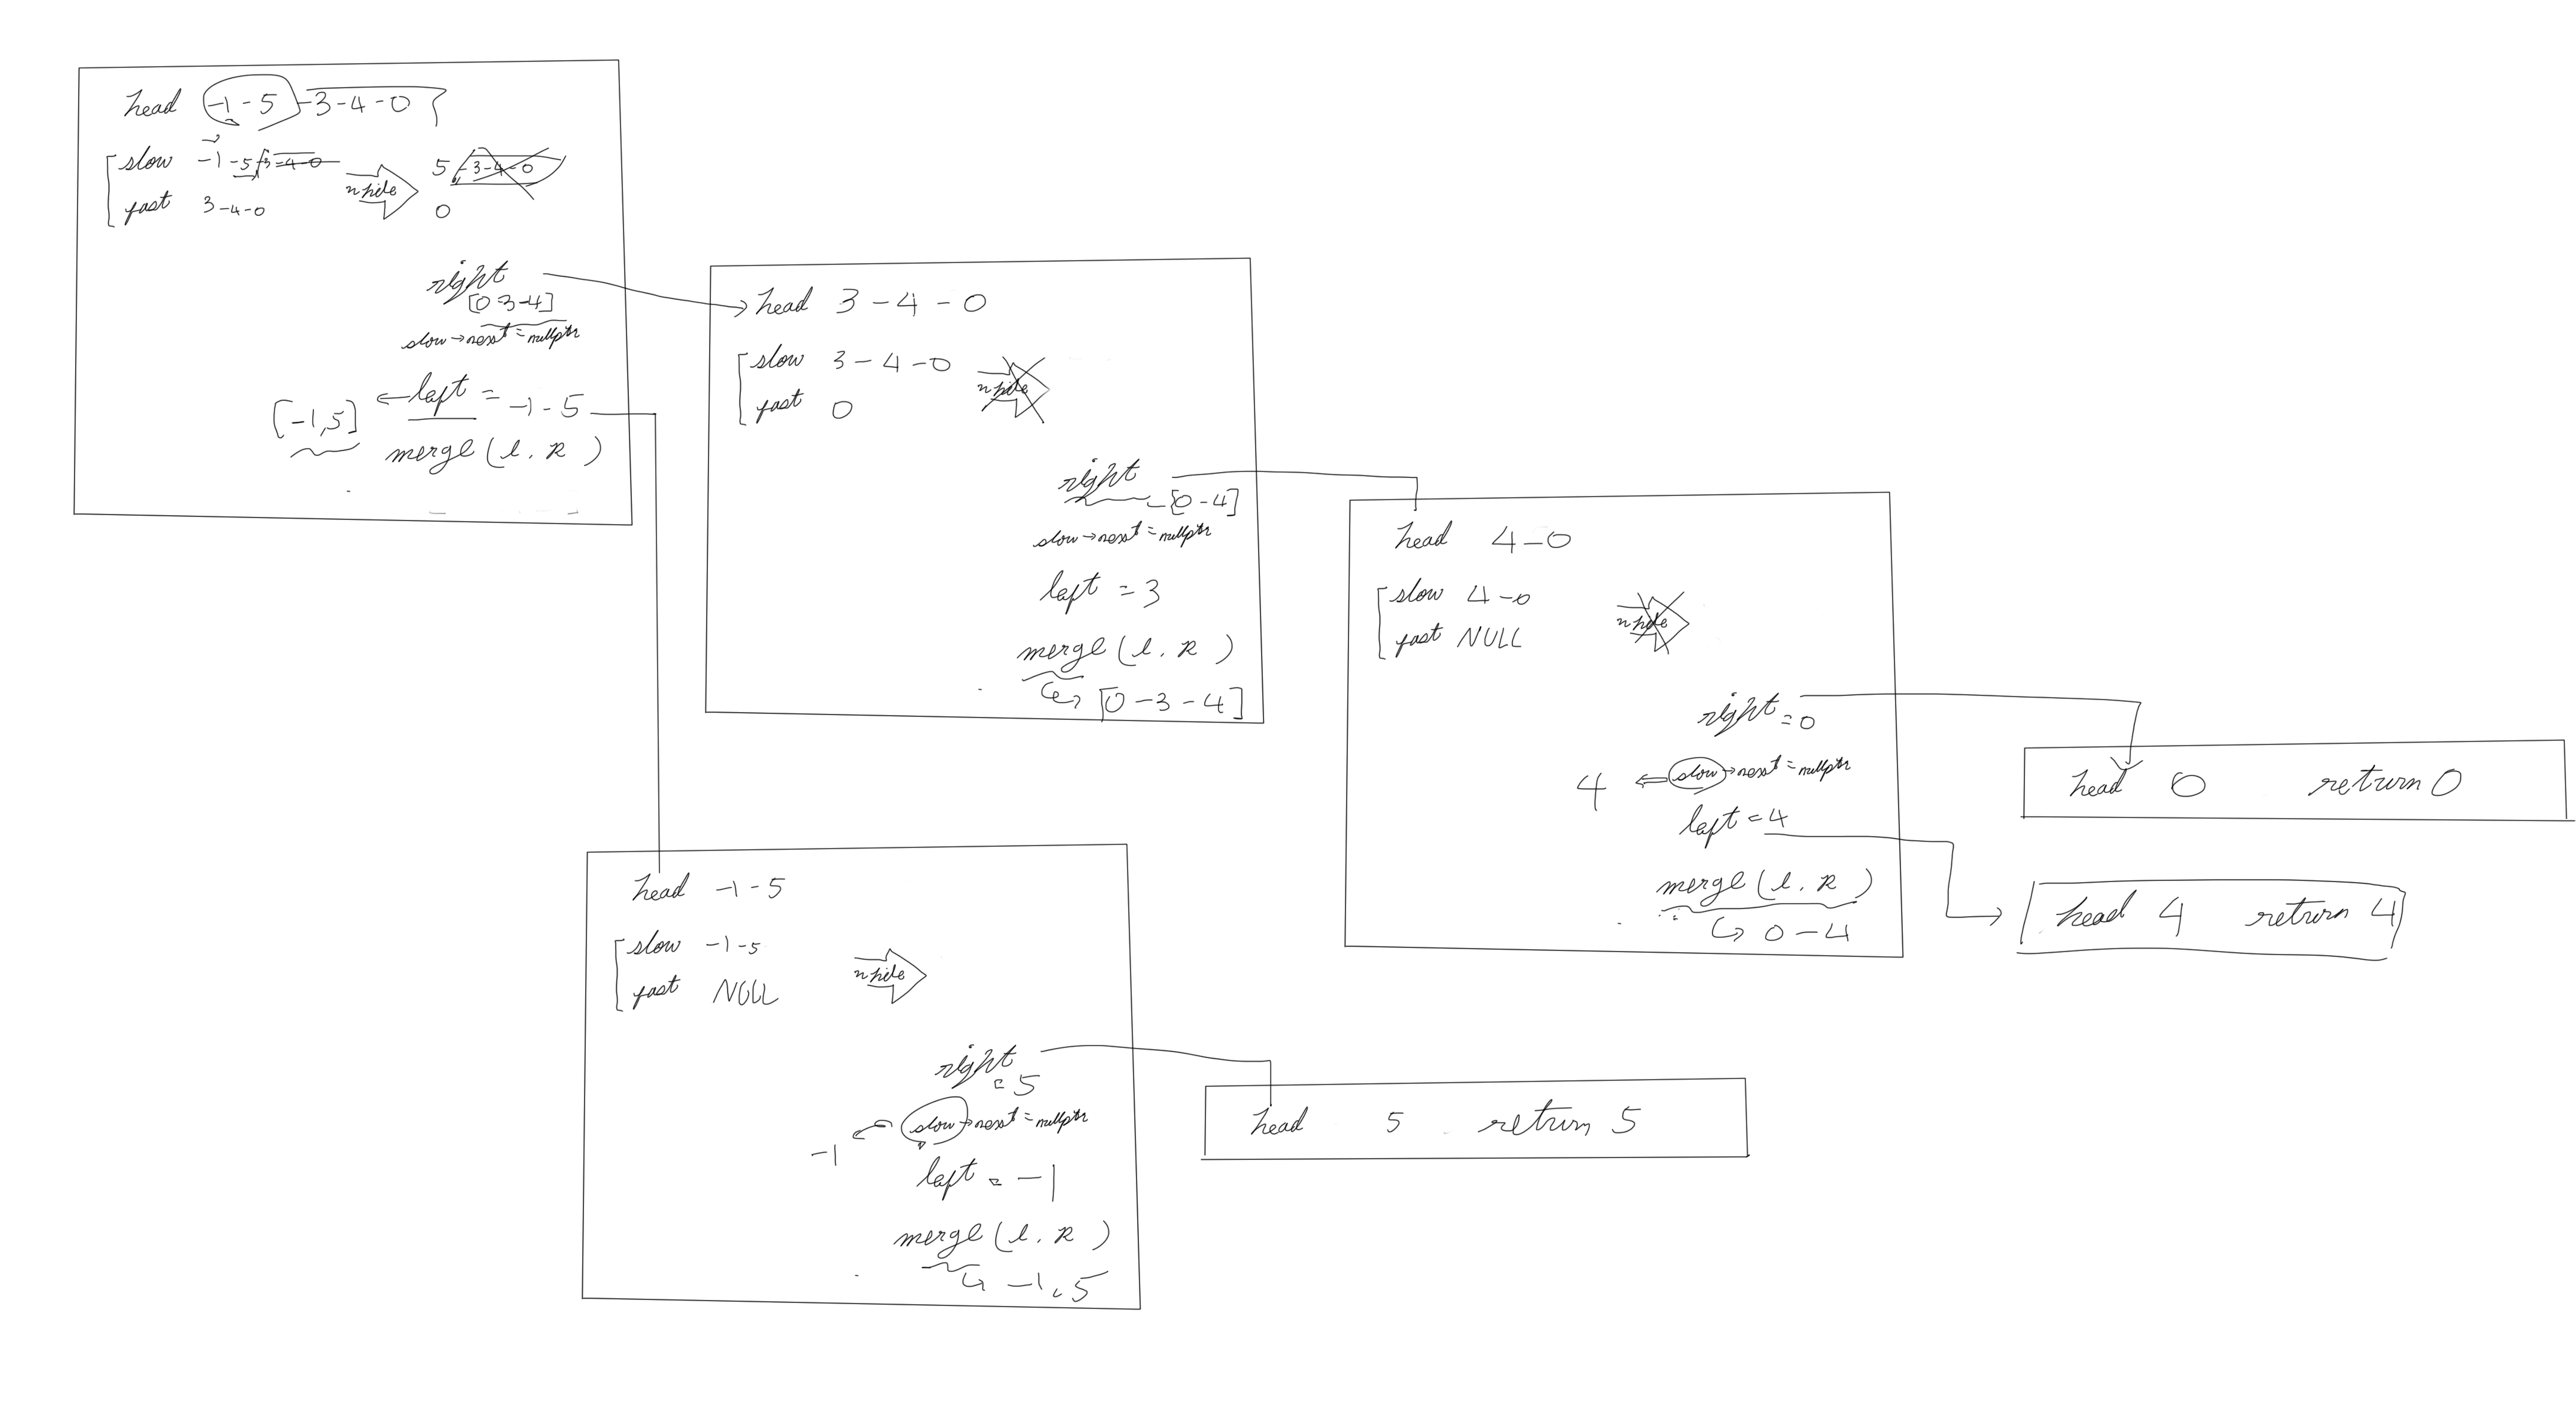 head -1-5-3-4-0
slow -1-5-3-4-0
fast 3-4-0
while
5-3-4-0
0
right
[0-3-4]
slow→next=nullptr
[-1,5] ← left = -1-5
merge(l, R)
head 3-4-0
slow 3-4-0
fast 0
while
right
[0-4]
slow→next=nullptr
left = 3
merge(l, R)
↳ [0-3-4]
head 4-0
slow 4-0
fast NULL
while
right = 0
4 ⇐ slow→next=nullptr
left = 4
merge(l, R)
↳ 0-4
head 0 return 0
head 4 return 4
head -1-5
slow -1-5
fast NULL
while
right
= 5
slow→next=nullptr
-1
left = -1
merge(l, R)
↳ -1,5
head 5 return 5